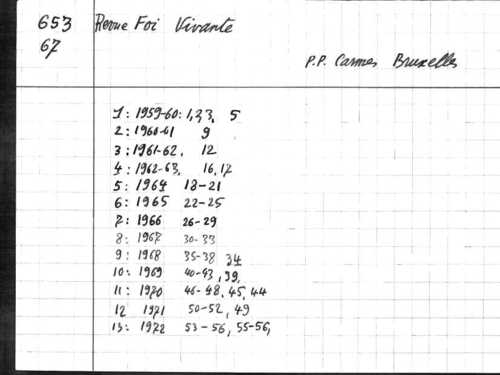 653 Revue Foi Vivante
67
P.P. Carmes Bruxelles
1: 1959-60: 1,23, 5
2: 1960-61 9
3: 1961-62. 12
4: 1962-63. 16,17
5: 1964 18-21
6: 1965 22-25
7: 1966 26-29
8: 1967 30-33
9: 1968 35-38 34
10: 1969 40-43, 39.
11: 1970 46-48, 45, 44
12 1971 50-52, 49
13: 1972 53-56, 55-56,